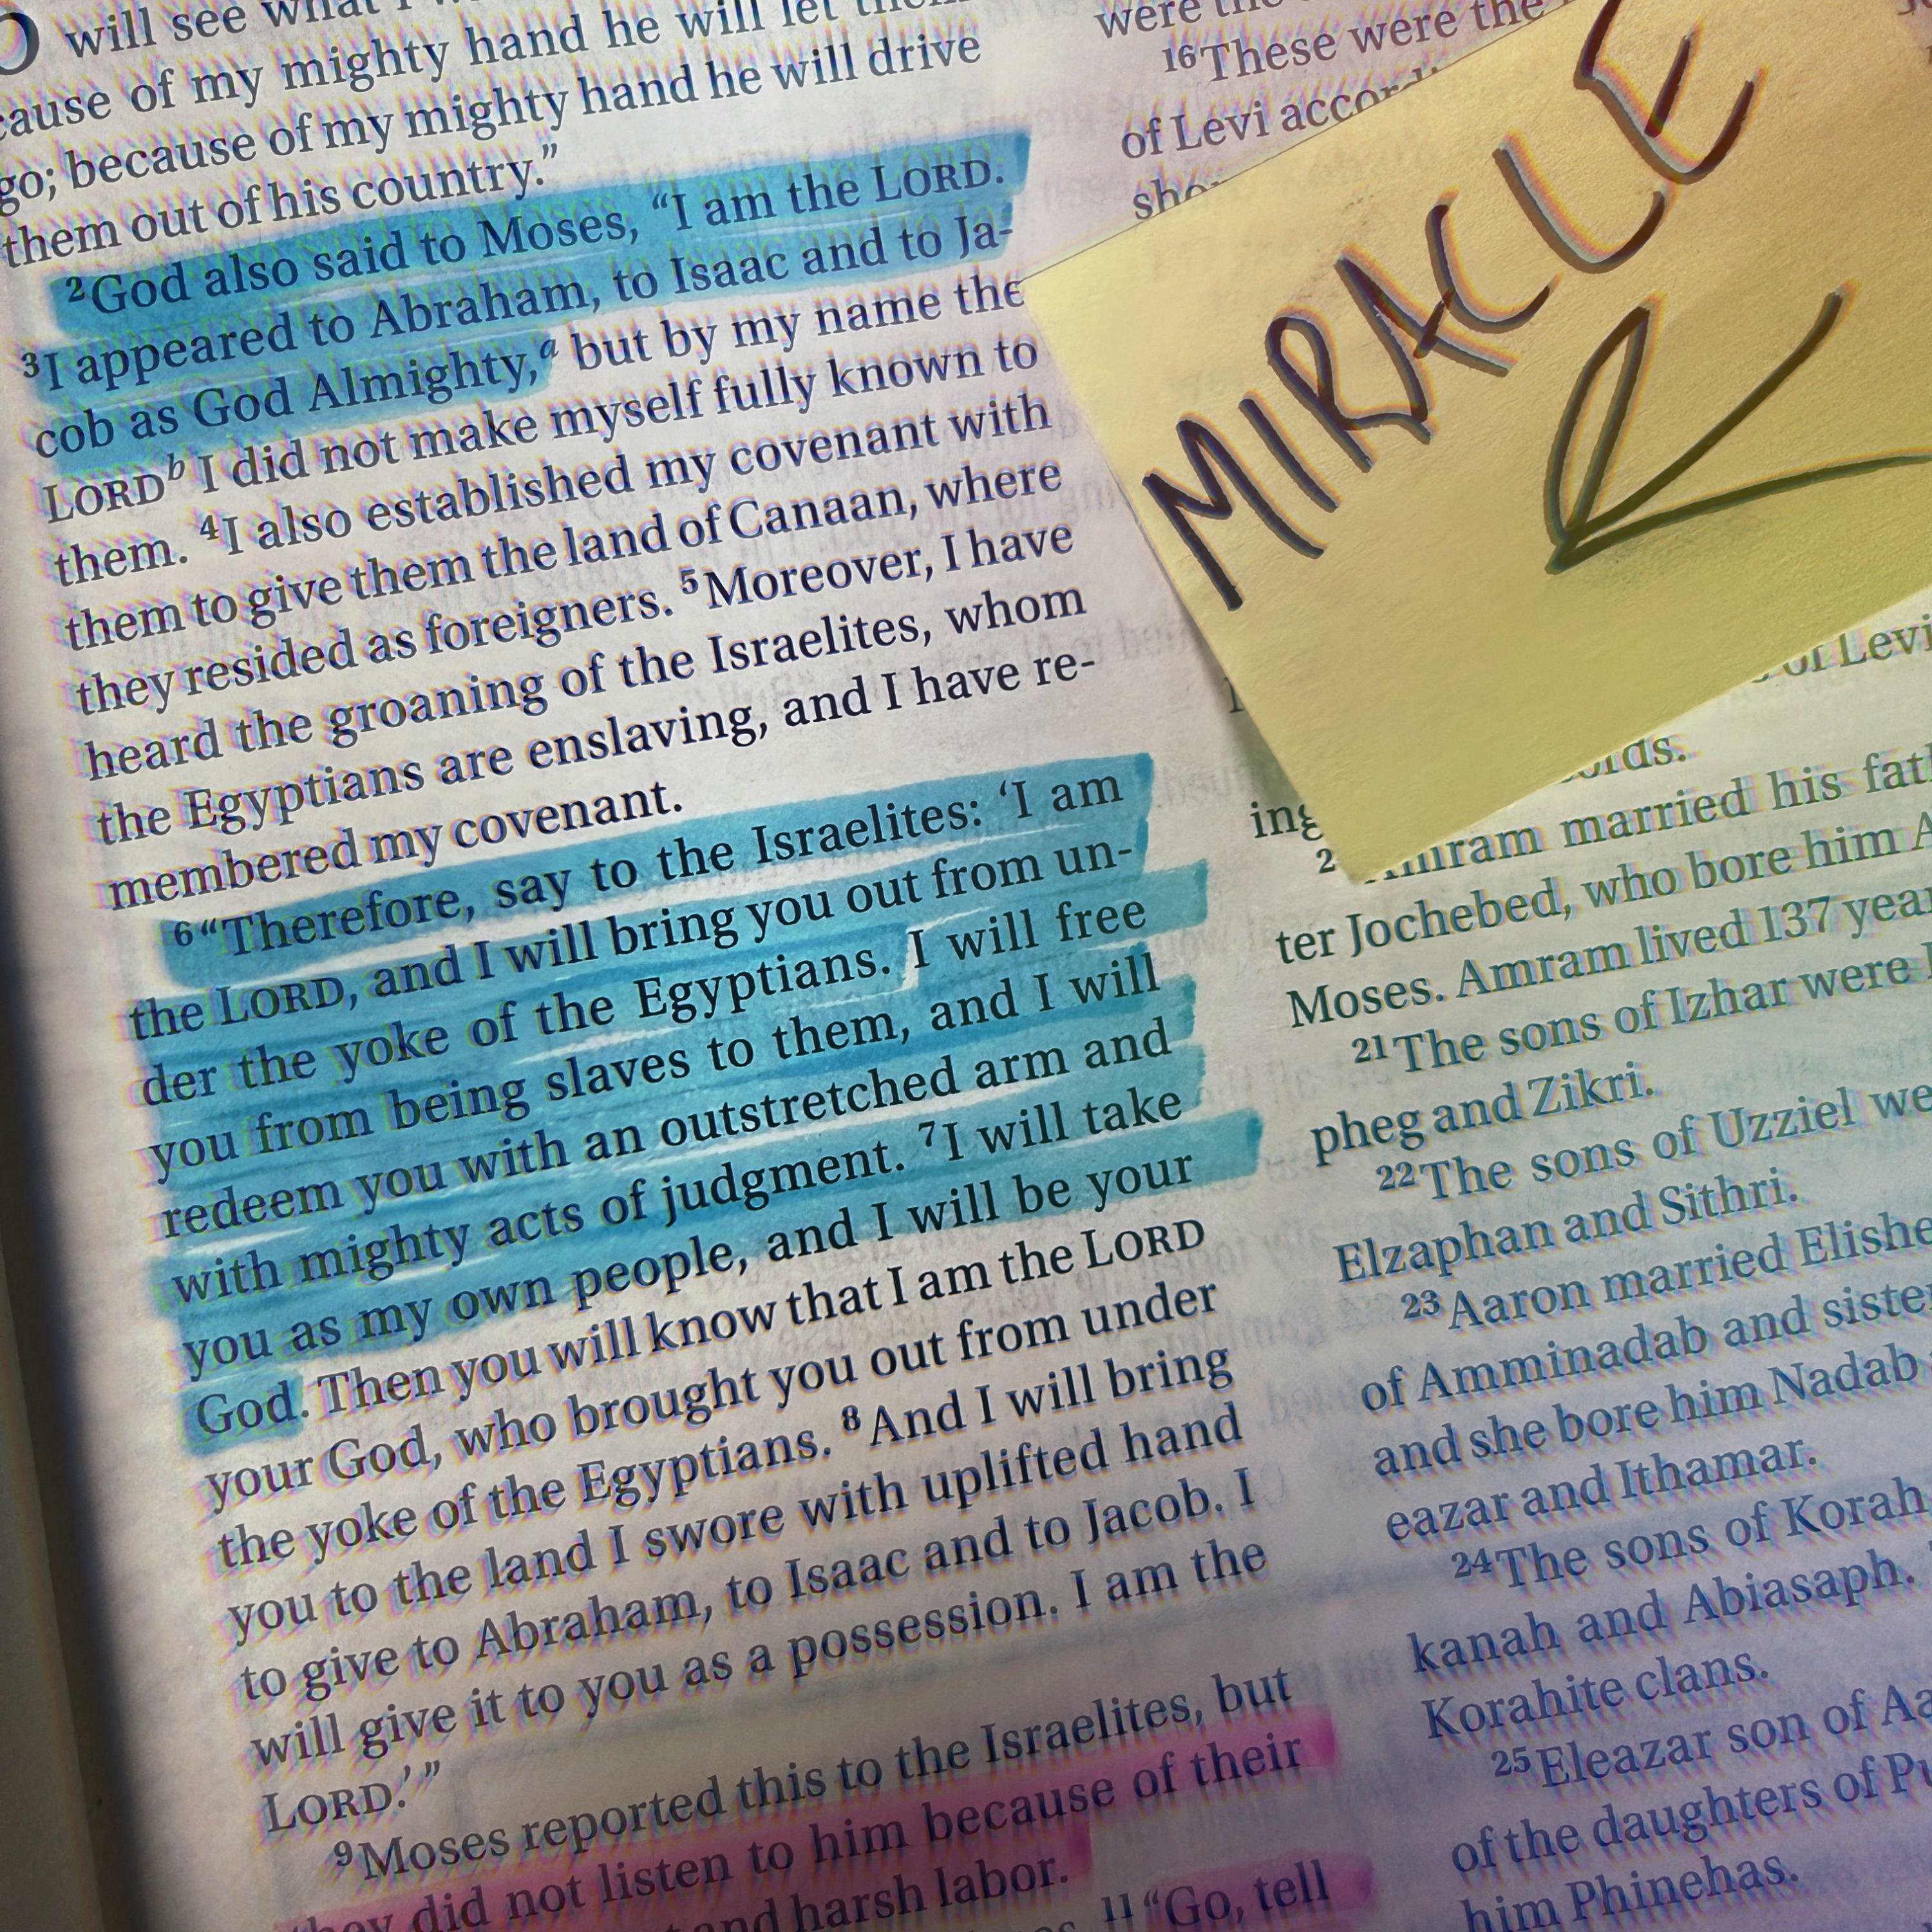 will see what I
cause of my mighty hand he will let them
go; because of my mighty hand he will drive
them out of his country.”
²God also said to Moses, “I am the LORD.
³I appeared to Abraham, to Isaac and to Ja-
cob as God Almighty,ᵃ but by my name the
LORDᵇ I did not make myself fully known to
them. ⁴I also established my covenant with
them to give them the land of Canaan, where
they resided as foreigners. ⁵Moreover, I have
heard the groaning of the Israelites, whom
the Egyptians are enslaving, and I have re-
membered my covenant.
⁶“Therefore, say to the Israelites: ‘I am
the LORD, and I will bring you out from un-
der the yoke of the Egyptians. I will free
you from being slaves to them, and I will
redeem you with an outstretched arm and
with mighty acts of judgment. ⁷I will take
you as my own people, and I will be your
God. Then you will know that I am the LORD
your God, who brought you out from under
the yoke of the Egyptians. ⁸And I will bring
you to the land I swore with uplifted hand
to give to Abraham, to Isaac and to Jacob. I
will give it to you as a possession. I am the
LORD.’”
⁹Moses reported this to the Israelites, but
they did not listen to him because of their
and harsh labor.
¹¹“Go, tell
were the
¹⁶These were the
of Levi accord
MIRACLE
of Levi
ing
Amram married his fat
ter Jochebed, who bore him A
Moses. Amram lived 137 year
²¹The sons of Izhar were
pheg and Zikri.
²²The sons of Uzziel we
Elzaphan and Sithri.
²³Aaron married Elishe
of Amminadab and siste
and she bore him Nadab
eazar and Ithamar.
²⁴The sons of Korah
kanah and Abiasaph.
Korahite clans.
²⁵Eleazar son of Aa
of the daughters of Pu
him Phinehas.